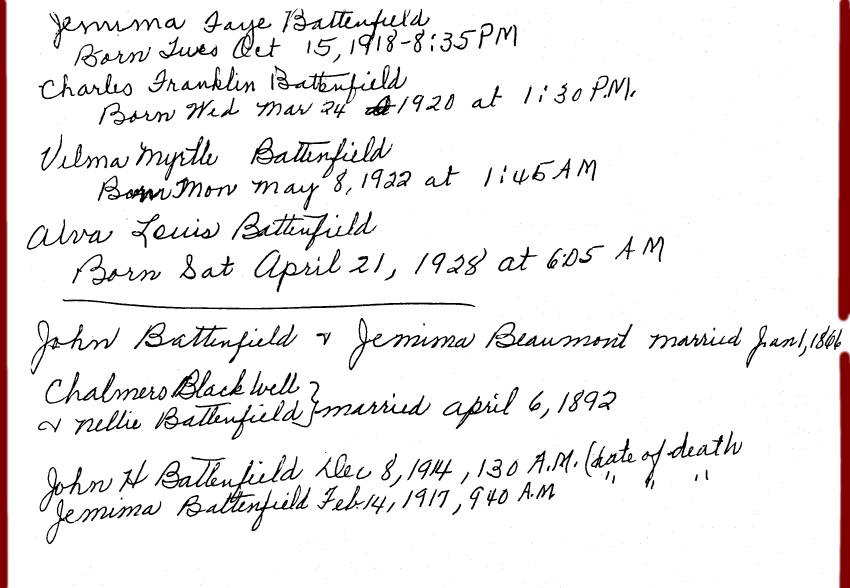 Jemima Faye Battenfield
Born Tues Oct 15, 1918-8:35PM
Charles Franklin Battenfield
Born Wed Mar 24 1920 at 1:30 P.M.
Velma Myrtle Battenfield
Born Mon May 8, 1922 at 1:45 AM
Alva Louis Battenfield
Born Sat April 21, 1928 at 6:05 AM
John Battenfield & Jemima Beaumont married Jan 1, 1866
Chalmers Blackwell
& Nellie Battenfield } married April 6, 1892
John H Battenfield Dec 8, 1914, 130 A.M. (date of death
Jemima Battenfield Feb. 14, 1917, 940 A.M " " "